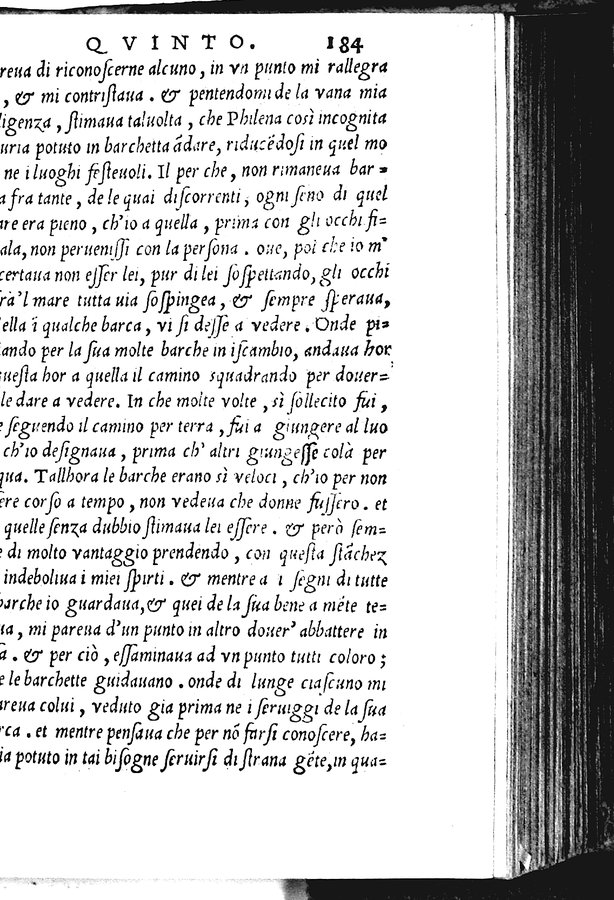 QVINTO. 184
reua di riconoſcerne alcuno, in vn punto mi rallegra
, & mi contriſtaua. & pentendomi de la vana mia
ligenza, ſtimaua taluolta, che Philena così incognita
uria potuto in barchetta ādare, riducēdoſi in quel mo
ne i luoghi feſteuoli. Il per che, non rimaneua bar=
a fra tante, de le quai diſcorrenti, ogni ſeno di quel
are era pieno, ch'io a quella, prima con gli occhi fi=
ala, non perueniſſi con la perſona. oue, poi che io m'
certaua non eſſer lei, pur di lei ſoſpettando, gli occhi
fra'l mare tutta uia ſoſpingea, & ſempre ſperaua,
'ella ī qualche barca, vi ſi deſſe a vedere. Onde pi=
iando per la ſua molte barche in iſcambio, andaua hor
queſta hor a quella il camino squadrando per douer=
le dare a vedere. In che molte volte, sì ſollecito fui,
e ſeguendo il camino per terra, fui a giungere al luo
ch'io deſignaua, prima ch' altri giungeſſe colà per
qua. Tallhora le barche erano sì veloci, ch'io per non
ſere corſo a tempo, non vedeua che donne fuſſero. et
quelle ſenza dubbio ſtimaua lei eſſere. & però ſem=
e di molto vantaggio prendendo, con queſta ſtāchez
indeboliua i miei ſpirti. & mentre a i ſegni di tutte
barche io guardaua, & quei de la ſua bene a mēte te=
ua, mi pareua d'un punto in altro douer' abbattere in
ſa. & per ciò, eſſaminaua ad vn punto tutti coloro;
e le barchette guidauano. onde di lunge ciaſcuno mi
areua colui, veduto gia prima ne i ſeruiggi de la ſua
rca. et mentre penſaua che per nō farſi conoſcere, ha=
ia potuto in tai biſogne ſeruirſi di ſtrana gēte, in qua=